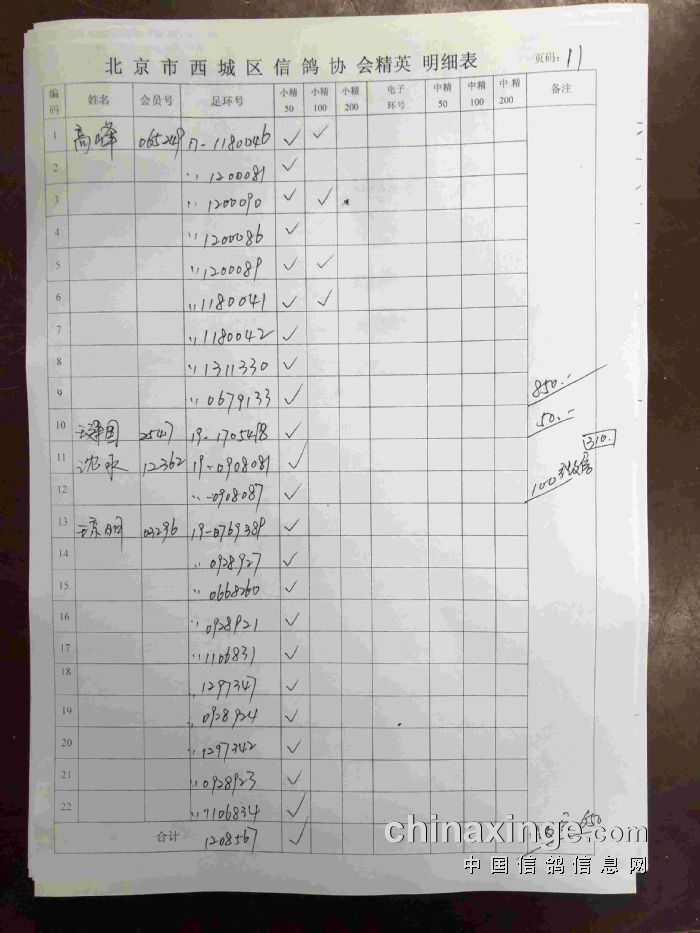 北京市西城区信鸽协会精英 明细表 页码: 11
编码 姓名 会员号 足环号 小精50 小精100 小精200 电子环号 中精50 中精100 中精200 备注
1 高峰 065249 17-1180046 ✓ ✓
2 〃 1200081 ✓
3 〃 1200090 ✓ ✓
4 〃 1200086 ✓
5 〃 1200089 ✓ ✓
6 〃 1180041 ✓ ✓
7 〃 1180042 ✓
8 〃 1311330 ✓
9 〃 0679133 ✓ 850.-
10 国 2547 19-1705498 ✓ 50.-
11 沈永 12362 19-0908081 ✓ 310.
12 〃-0908087 ✓ 100
13 王京明 03296 19-0769389 ✓
14 〃 0928927 ✓
15 〃 0668260 ✓
16 〃 0928921 ✓
17 〃 1106831 ✓
18 〃 1297347 ✓
19 〃 0928924 ✓
20 〃 1297342 ✓
21 〃 0928923 ✓
22 〃 1106834 ✓
合计 1208567 ✓ 550
chinaxinge.com
中国信鸽信息网